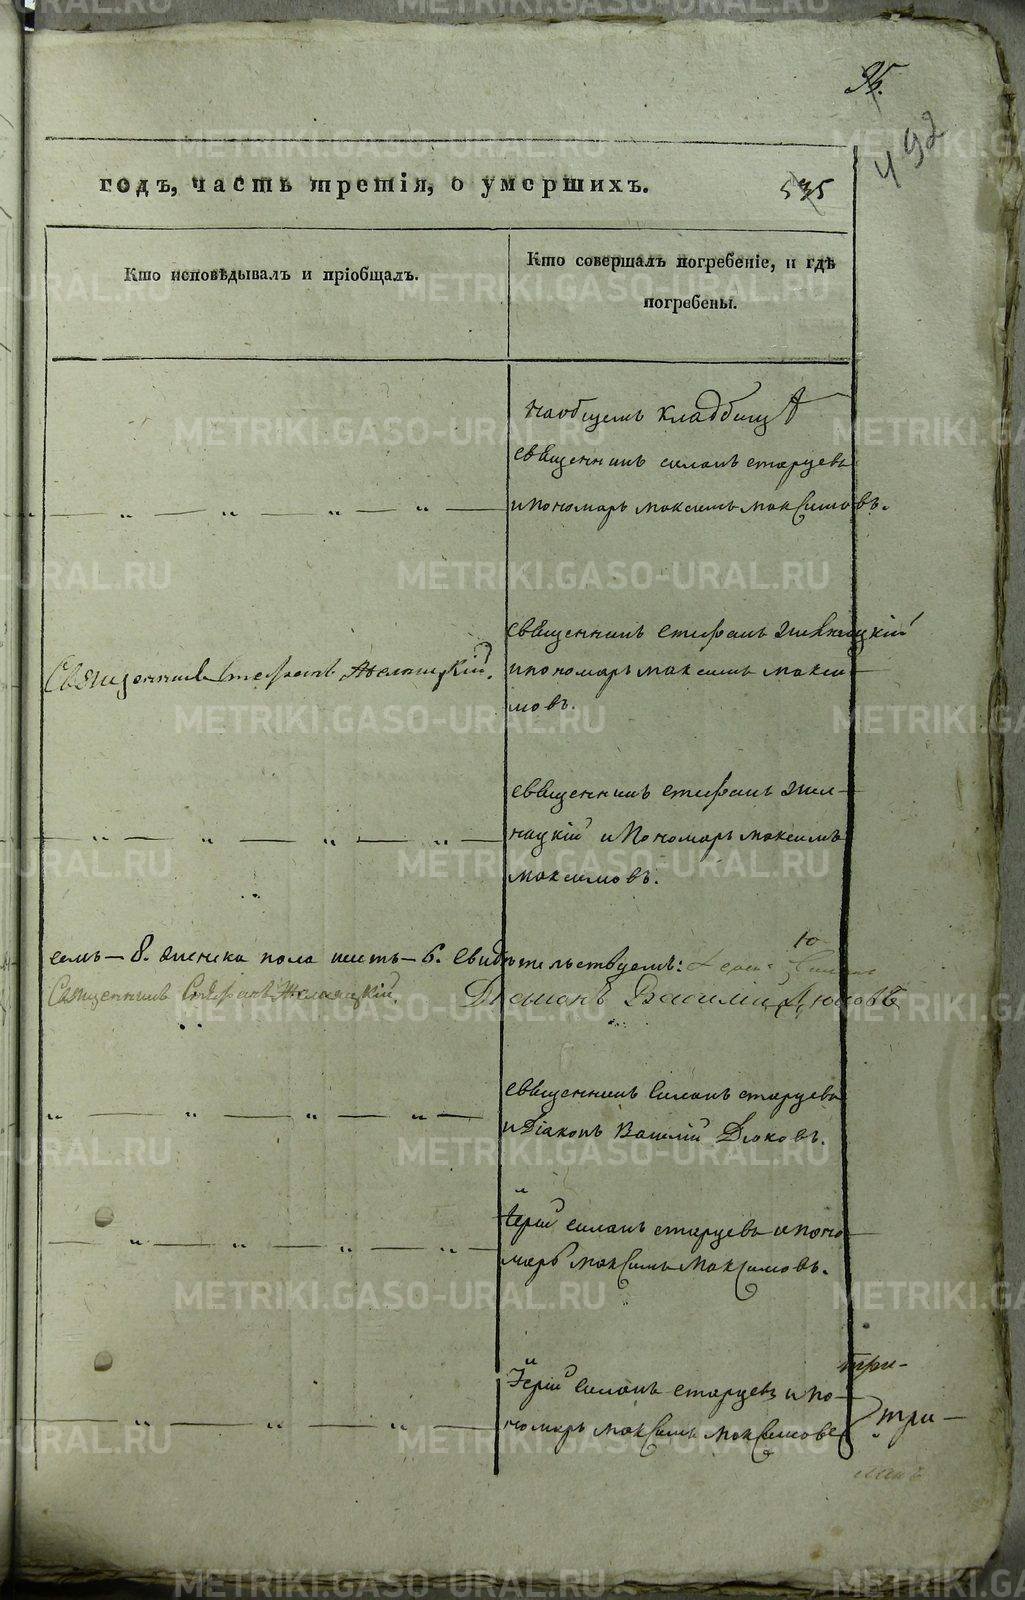 95.
492
годъ, часть третія, о умершихъ.
535
Кто исповѣдывалъ и пріобщалъ.
Кто совершалъ погребеніе, и гдѣ
погребены.
на общемъ кладбищѣ
священникъ силанъ старцевъ
и пономарь максимъ максимовъ.
Священникъ Стефанъ
священникъ стефанъ
и пономарь максимъ макси
мовъ.
священникъ стефанъ
нацкій и Пономарь максимъ
максимовъ.
семъ – 8. женска пола шесть – 6. свидѣтельствуемъ:
Священникъ Стефанъ
Діаконъ Василій Дюковъ
священникъ Силанъ старцевъ
и Діаконъ Василій Дюковъ.
Іерей силанъ старцевъ и поно
марь максимъ Максимовъ.
Іерей Силанъ старцевъ и по
номарь максимъ максимовъ
три-
три-
METRIKI.GASO-URAL.RU